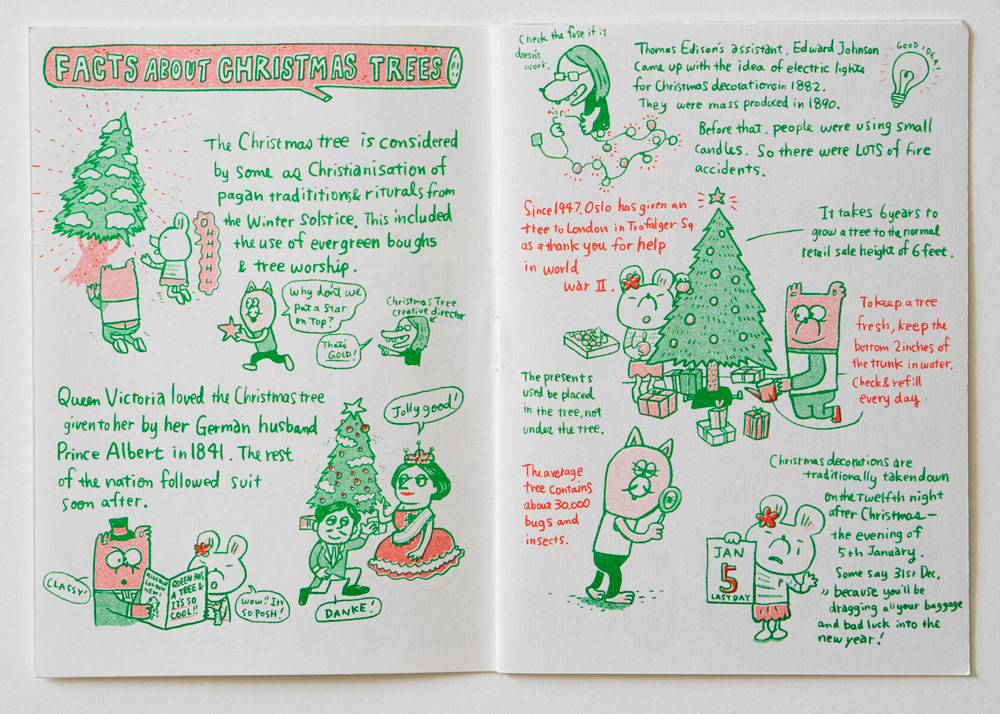 FACTS ABOUT CHRISTMAS TREES
The Christmas tree is considered
by some as Christianisation of
pagan tradititions & riturals from
the Winter Solstice. This included
the use of evergreen boughs
& tree worship.
OHHHHH
Why don't we
put a star
on Top?
Christmas Tree
creative director
That's
GOLD!
Queen Victoria loved the Christmas tree
given to her by her German husband
Prince Albert in 1841. The rest
of the nation followed suit
soon after.
Jolly good!
CLASSY!
ILLUSTRATED
LONDON
NEWS
QUEEN HAS
A TREE &
IT'S SO
COOL!!
WOW!! It's
SO POSH!
DANKE!
Check the fuse if it
doesn't
work.
Thomas Edison's assistant, Edward Johnson
came up with the idea of electric lights
for Christmas decorations in 1882.
They were mass produced in 1890.
GOOD IDEA!
Before that, people were using small
candles. So there were LOTS of fire
accidents.
Since 1947, Oslo has given an
tree to London in Trafalger Sq
as a thank you for help
in world
war II.
It takes 6 years to
grow a tree to the normal
retail sale height of 6 feet.
To keep a tree
fresh, keep the
bottom 2 inches of
the trunk in water.
Check & refill
every day.
The presents
used be placed
in the tree, not
under the tree.
The average
tree contains
about 30,000
bugs and
insects.
Christmas decorations are
traditionally taken down
on the twelfth night
after Christmas—
the evening of
5th January.
Some say 31st Dec,
because you'll be
dragging all your baggage
and bad luck into the
new year!
JAN
5
LAST DAY